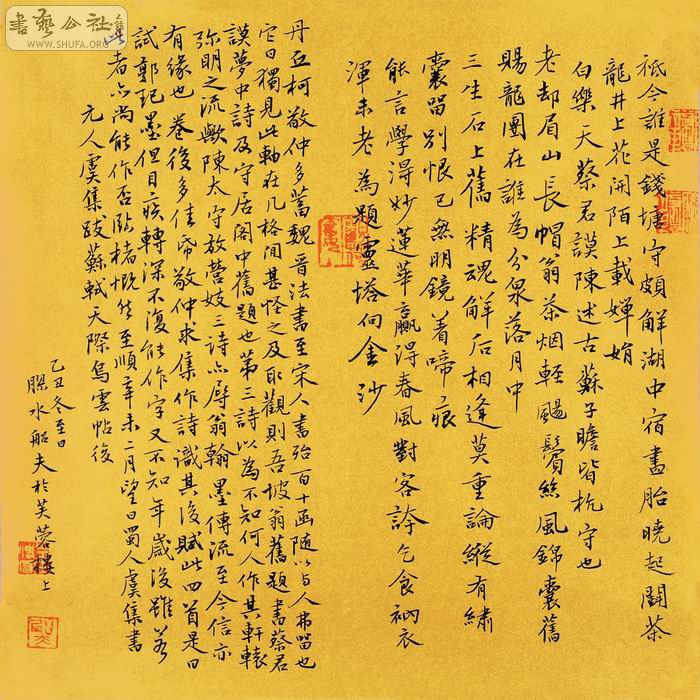 書藝公社
WWW.SHUFA.ORG
祗今誰是錢塘守頗解湖中宿畫船曉起鬪茶
龍井上花開陌上載嬋娟
白樂天蔡君謨陳述古蘇子瞻皆杭守也
老却眉山長帽翁茶烟輕颺鬢絲風錦囊舊
賜龍團在誰為分泉落月中
三生石上舊精魂解后相逢莫重論縱有繡
囊留別恨已無明鏡着啼痕
能言學得妙蓮華贏得春風對客誇乞食衲衣
渾未老為題靈塔向金沙
丹丘柯敬仲多蓄魏晉法書至宋人書殆百十函隨以與人弗留也
它日獨見此軸在几格間甚怪之及取觀則吾坡翁舊題書蔡君
謨夢中詩及守居閣中舊題也第三詩以為不知何人作其軒轅
彌明之流歟陳太守放營妓三詩亦辱翁翰墨傳流至今信亦
有緣也卷後多佳帋敬仲求集作詩識其後賦此四首是日
試郭玘墨但目疾轉深不復能作字又不知年歲後雖若
此者亦尚能作否臨楮慨然至順辛未二月望日蜀人虞集書
元人虞集跋蘇軾天際烏雲帖後
乙丑冬至日
膠水船夫於芙蓉樓上